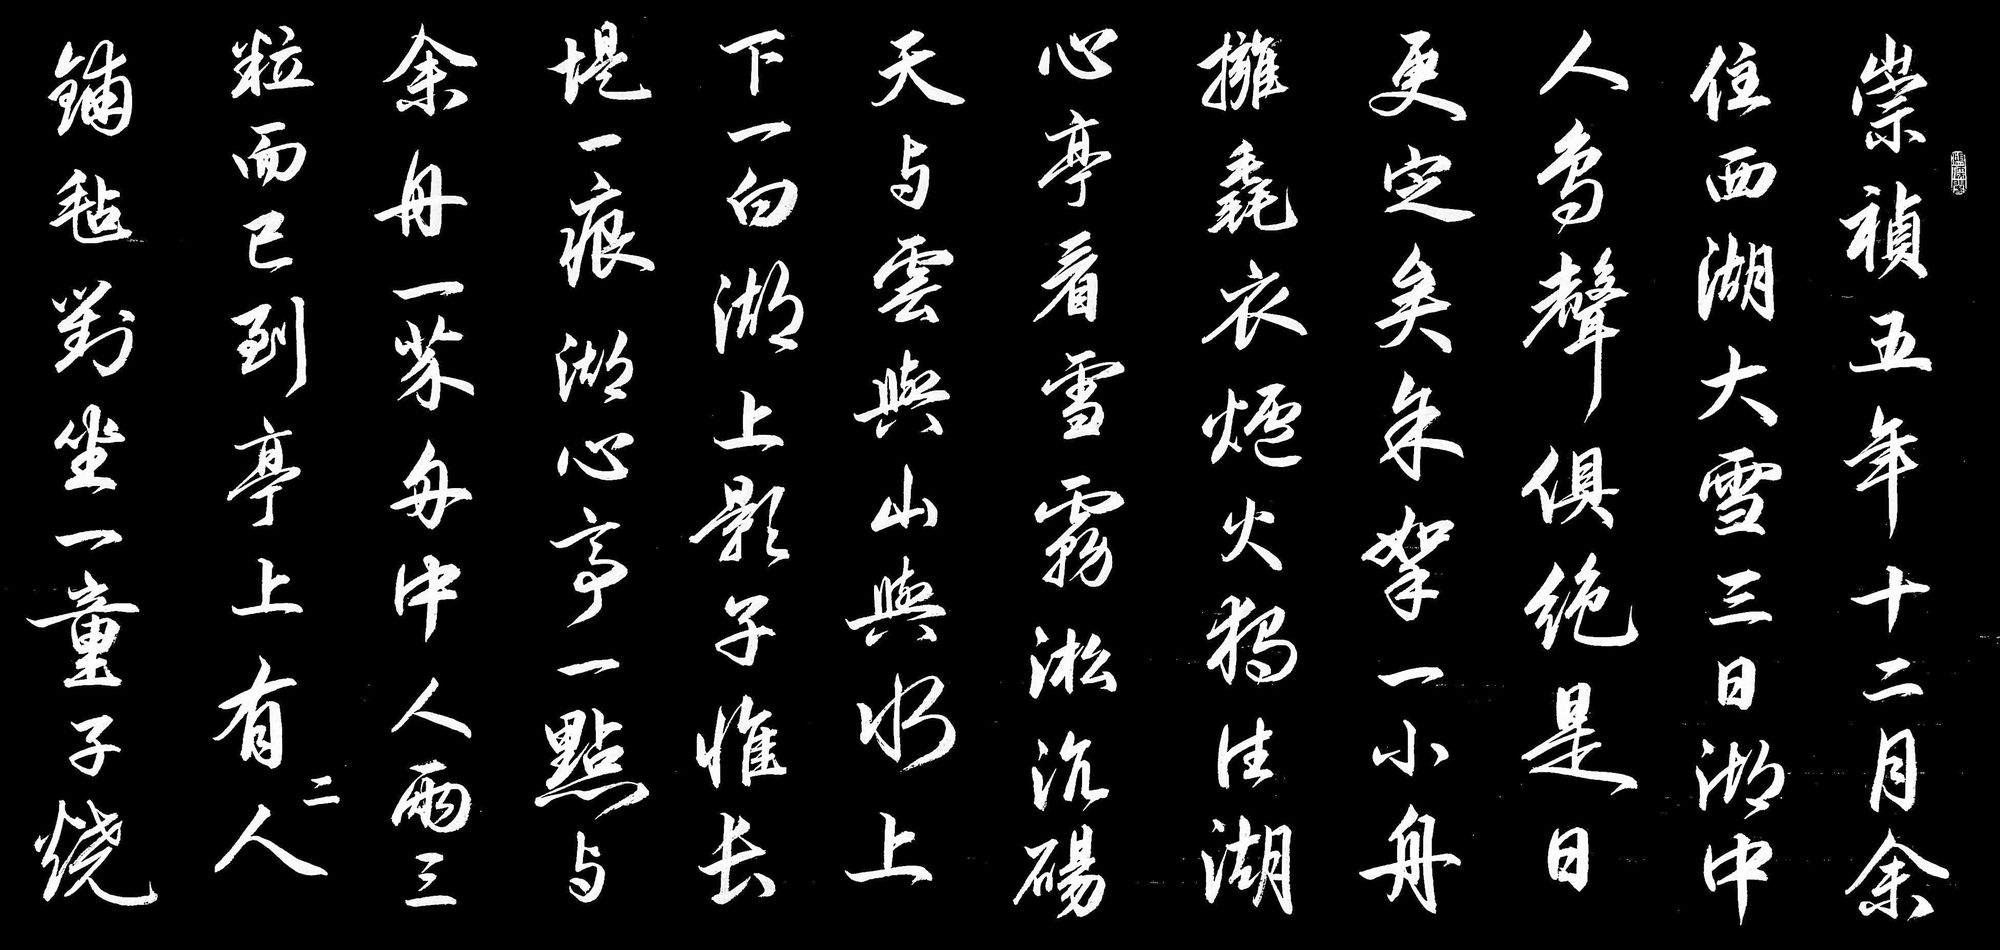 崇禎五年十二月余
住西湖大雪三日湖中
人鳥聲俱絶是日
更定矣余挐一小舟
擁毳衣爐火獨往湖
心亭看雪霧淞沆碭
天与雲與山與水上
下一白湖上影子惟长
堤一痕湖心亭一點与
余舟一芥舟中人兩三
粒而已到亭上有二人
鋪毡對坐一童子燒